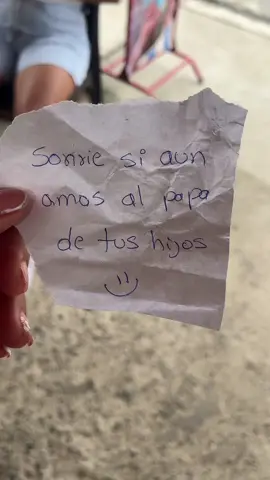 Sonrie si aun
amos al papa
de tus hijos